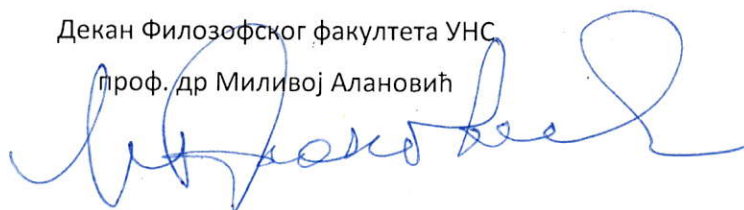 Декан Филозофског факултета УНС
проф. др Миливој Алановић